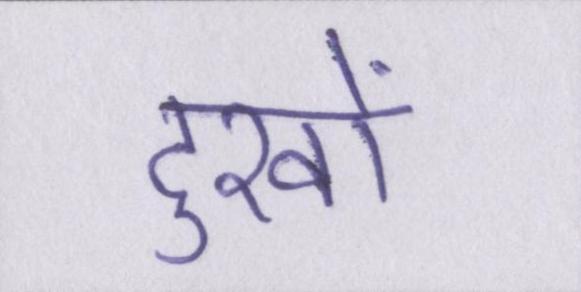 दुखों